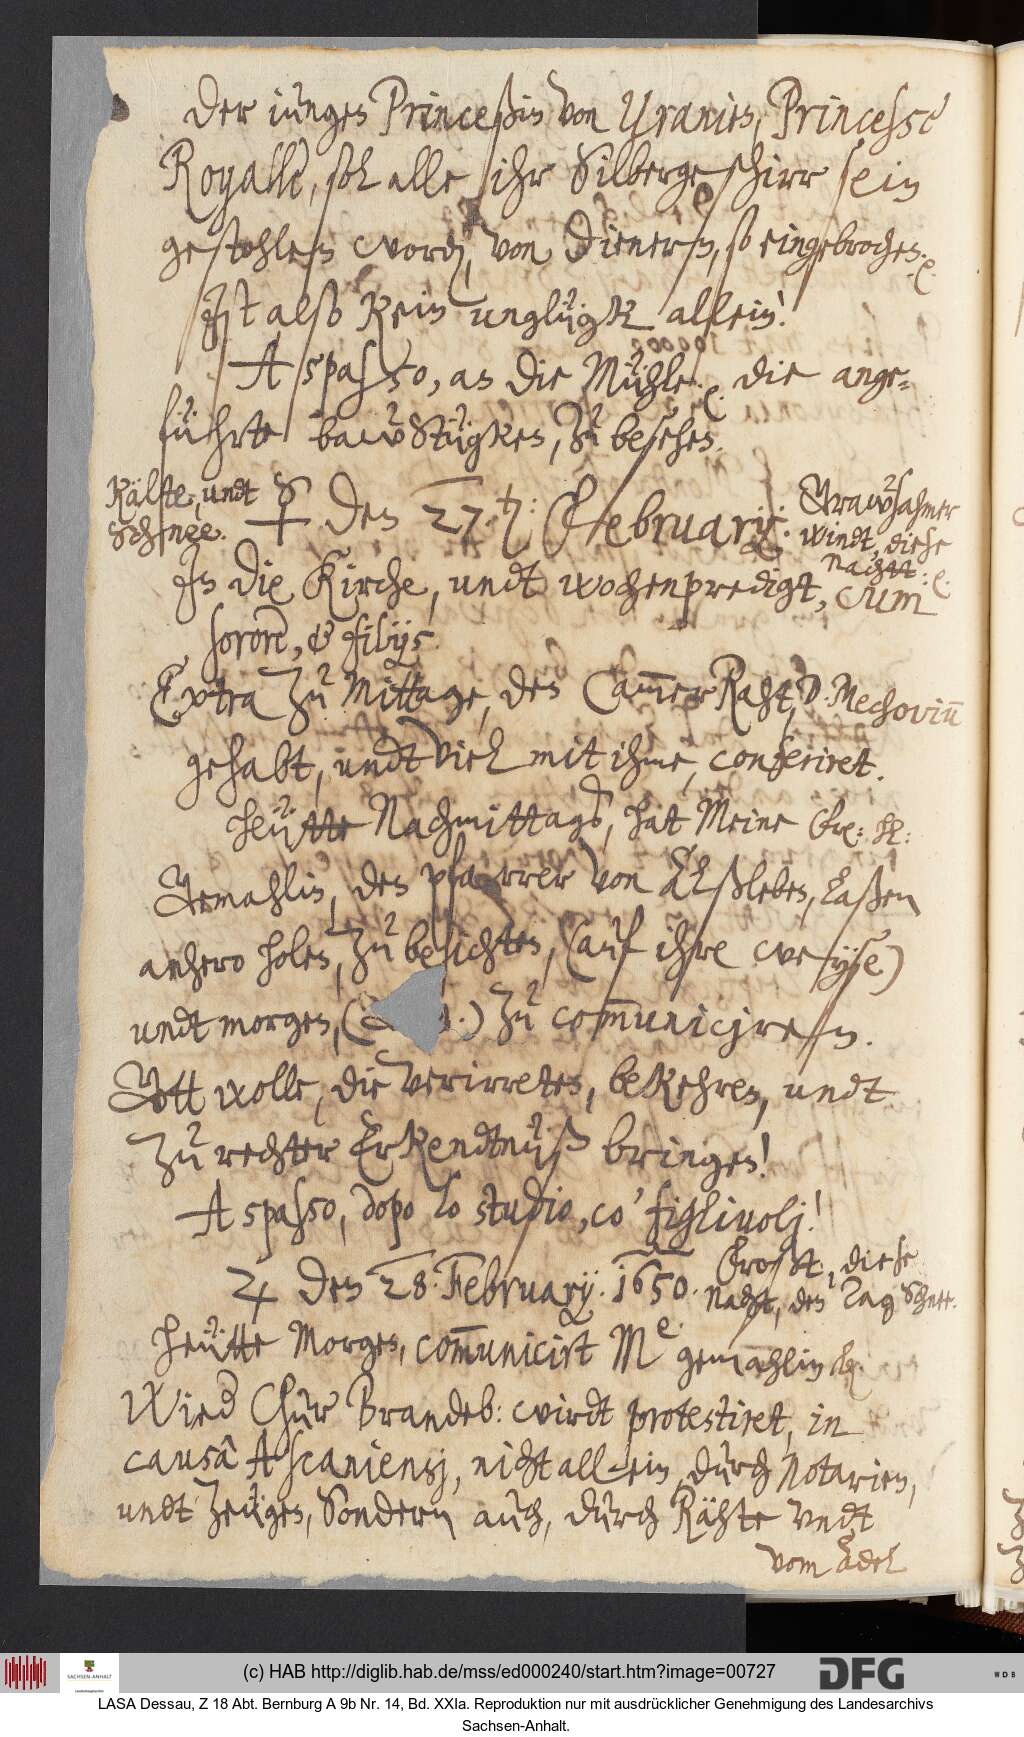 Der iungen Princeßin von Uranien, Princesse
Royalle, sol alle ihr Silbergeschirr sein
gestohlen word, von Dienern, so eingebrochen.
Jst also kein unglügk allein!
A spasso, an die Mühle. die ange-
führte bawstügken, zu besehen.
Kälte, undt
Schnee.
☿ den 27.t: February.
Grawsahmer
windt, diese
nacht:
Jn die Kirche, undt wochenpredigt, cum
sorore, & filijs.
Extra zu Mittage, den Cammer Raht, D. Mechoviū
gehabt, undt viel mit ihme, conferiret.
Heütte Nachmittags, hat Meine fre: hl:
Gemahlin, den pfarrer von Altzleben, laßen
anhero holen, zu beichten, (auf ihre weÿse)
undt morgen, ( .) zu com̄unicjren.
Gott wolle, die verirreten, bekehren, undt
zu rechter Erkendtnüß bringen!
A spasso, dopo lo studio, co' figlivolj!
♃ den 28. February. 1650.
Frost, diese
Nacht, den Tag Schnee.
Heütte Morgen, com̄unicirt Me gemahlin
Wied Chur Brandeb: wirdt protestiret, in
causâ Ascaniensj, nicht allein durch Notarien,
undt Zeügen, Sondern auch, durch Rähte undt
vom Adel
(c) HAB http://diglib.hab.de/mss/ed000240/start.htm?image=00727
SACHSEN-ANHALT
DFG
WDB
LASA Dessau, Z 18 Abt. Bernburg A 9b Nr. 14, Bd. XXIa. Reproduktion nur mit ausdrücklicher Genehmigung des Landesarchivs
Sachsen-Anhalt.